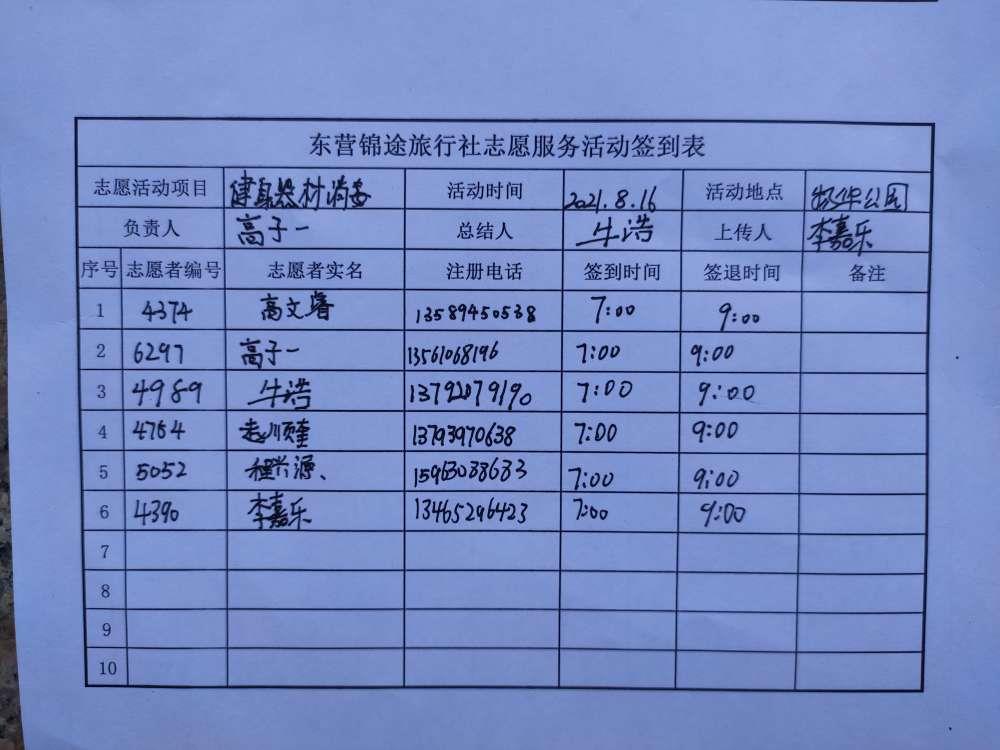 东营锦途旅行社志愿服务活动签到表
志愿活动项目 健身器材消毒 活动时间 2021.8.16 活动地点 公园
负责人 高子一 总结人 牛浩 上传人 李嘉乐
序号 志愿者编号 志愿者实名 注册电话 签到时间 签退时间 备注
1 4374 高文睿 13589450538 7:00 9:00
2 6297 高子一 13561068196 7:00 9:00
3 4989 牛浩 13792079190 7:00 9:00
4 4764 13793970638 7:00 9:00
5 5052 程兴源、 15963038683 7:00 9:00
6 4390 李嘉乐 13465296423 7:00 9:00
7
8
9
10